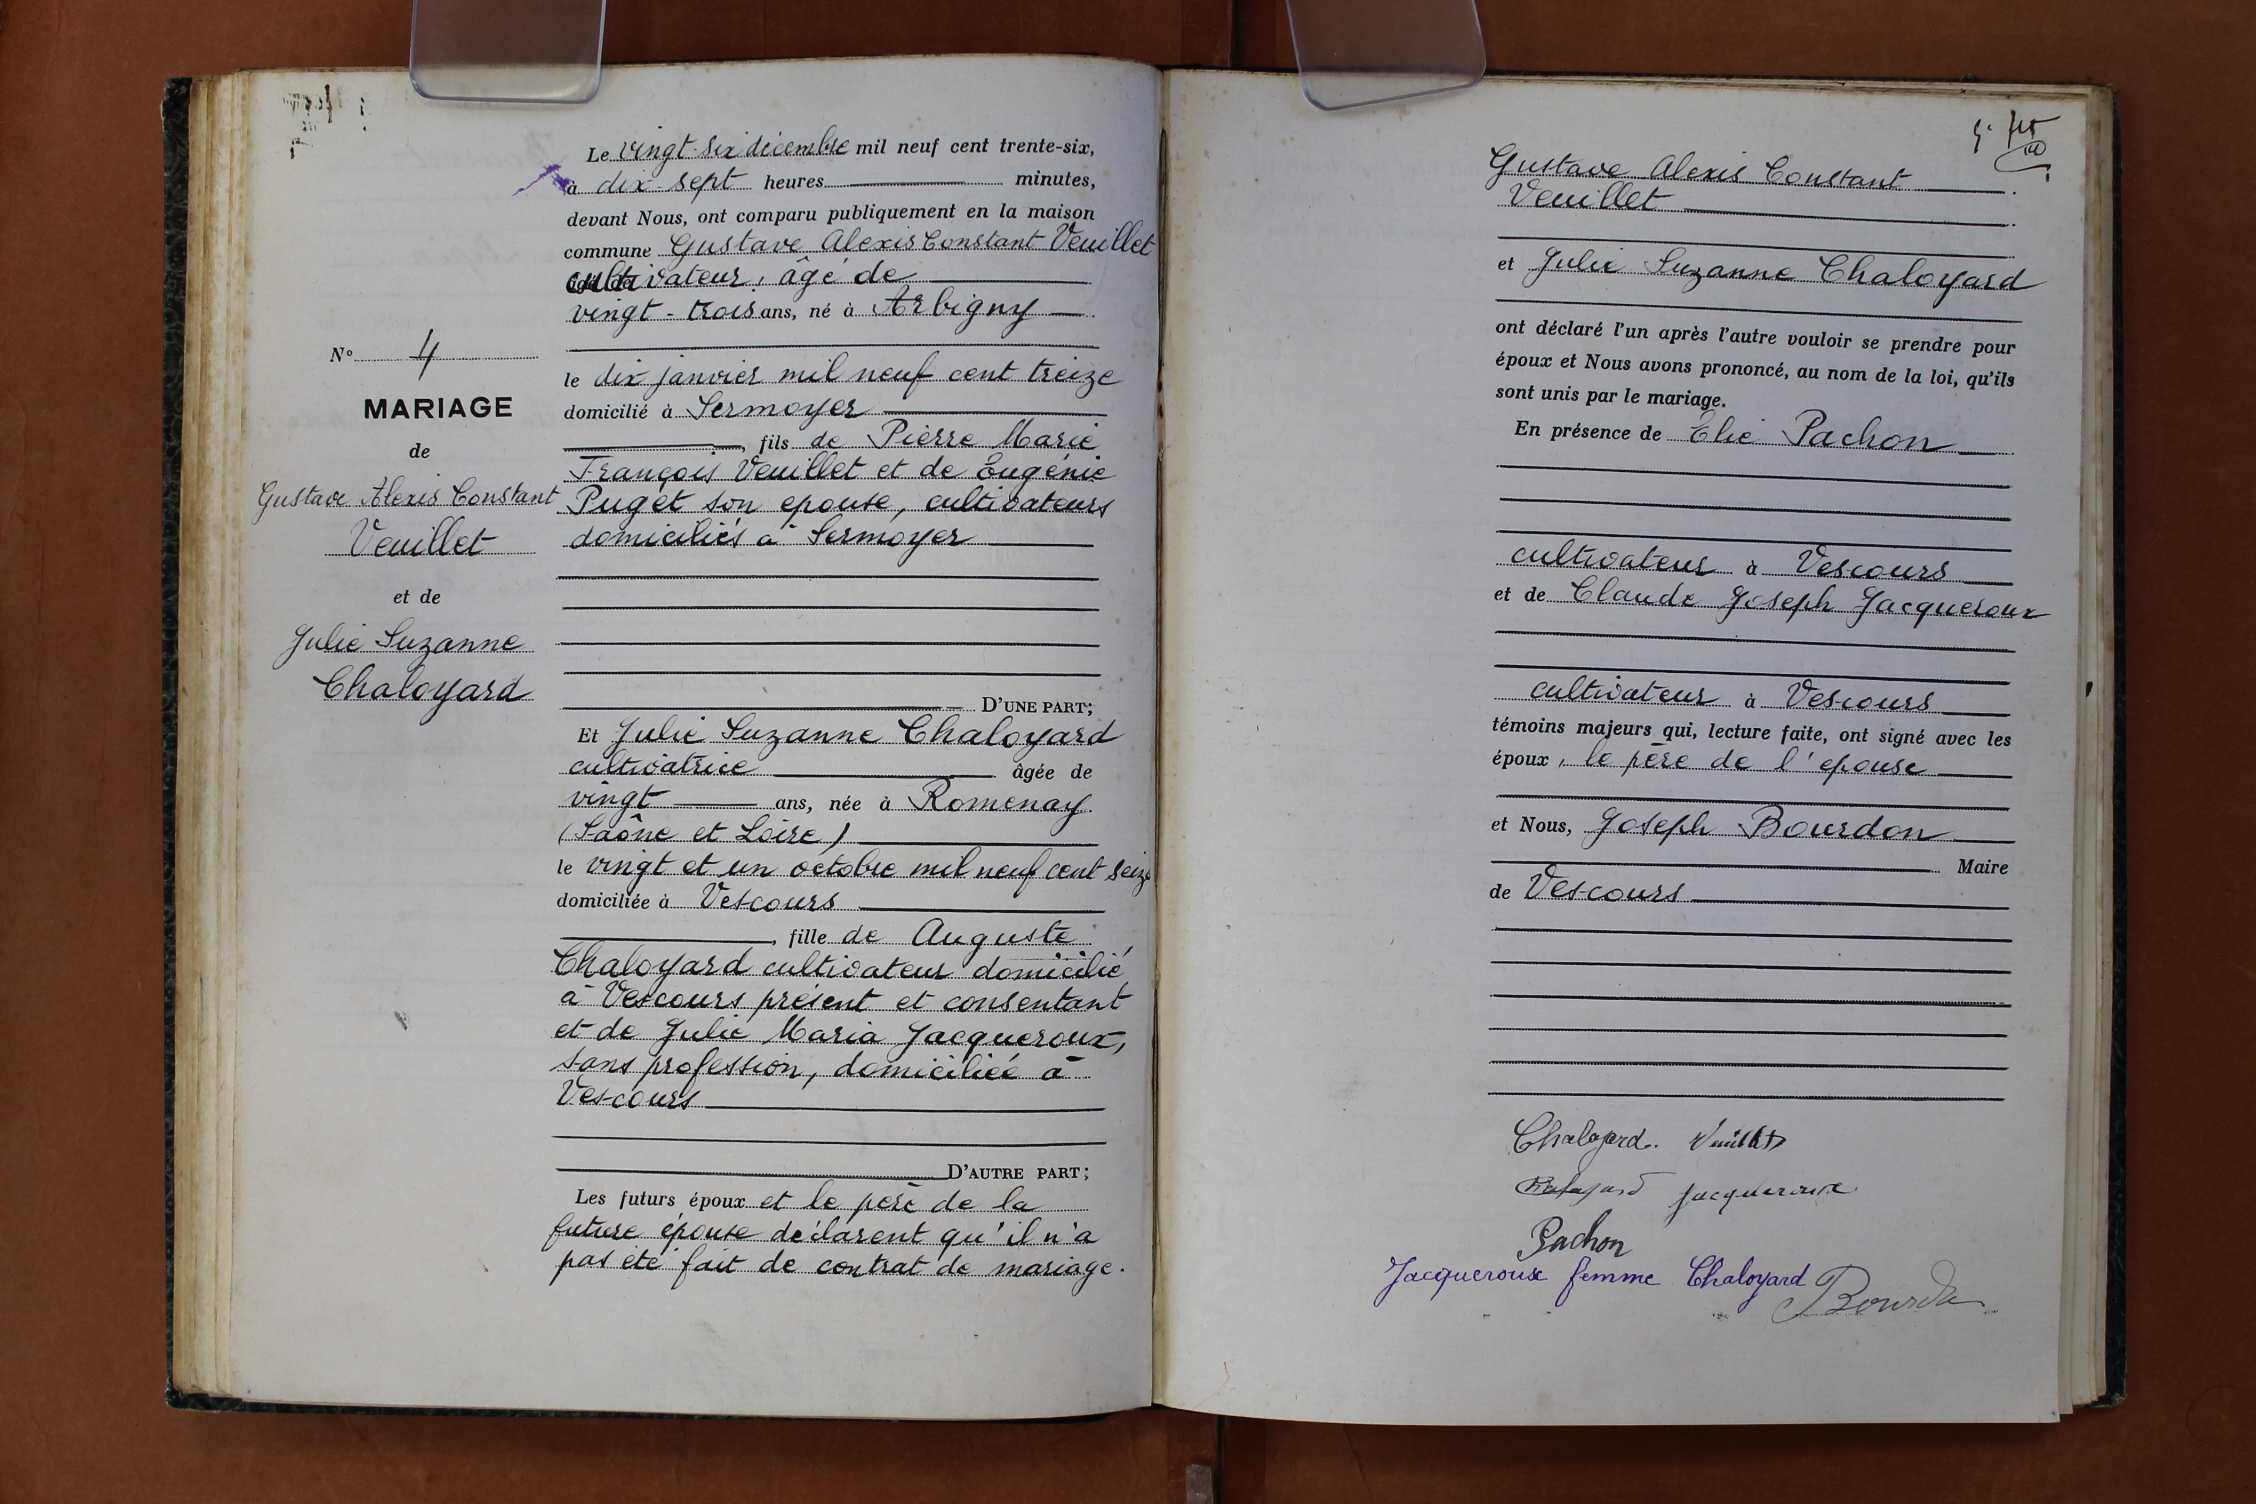 Le vingt-six décembre mil neuf cent trente-six,
à dix-sept heures minutes,
devant Nous, ont comparu publiquement en la maison
commune Gustave Alexis Constant Veuillet
cultivateur, âgé de
vingt-trois ans, né à Arbigny
le dix janvier mil neuf cent treize
domicilié à Sermoyer
, fils de Pierre Marie
François Veuillet et de Eugénie
Puget son epouse, cultivateurs
domiciliés à Sermoyer
D'UNE PART;
Nº 4
MARIAGE
de
Gustave Alexis Constant
Veuillet
et de
Julie Suzanne
Chaloyard
Et Julie Suzanne Chaloyard
cultivatrice âgée de
vingt ans, née à Romenay
(Saône et Loire)
le vingt et un octobre mil neuf cent seize
domiciliée à Vescours
, fille de Auguste
Chaloyard cultivateur domicilié
à Vescours présent et consentant
et de Julie Maria Jacqueroux,
sans profession, domiciliée à
Vescours
D'AUTRE PART;
Les futurs époux et le père de la
future épouse déclarent qu'il n'a
pas été fait de contrat de mariage.
Gustave Alexis Constant
Veuillet
et Julie Suzanne Chaloyard
ont déclaré l'un après l'autre vouloir se prendre pour
époux et Nous avons prononcé, au nom de la loi, qu'ils
sont unis par le mariage.
En présence de Elie Pachon
cultivateur à Vescours
et de Claude Joseph Jacqueroux
cultivateur à Vescours
témoins majeurs qui, lecture faite, ont signé avec les
époux, le père de l'epouse
et Nous, Joseph Bourdon
Maire
de Vescours
Chaloyard. Veuillet
Chaloyard Jacqueroux
Pachon
Jacqueroux femme Chaloyard
Bourdon